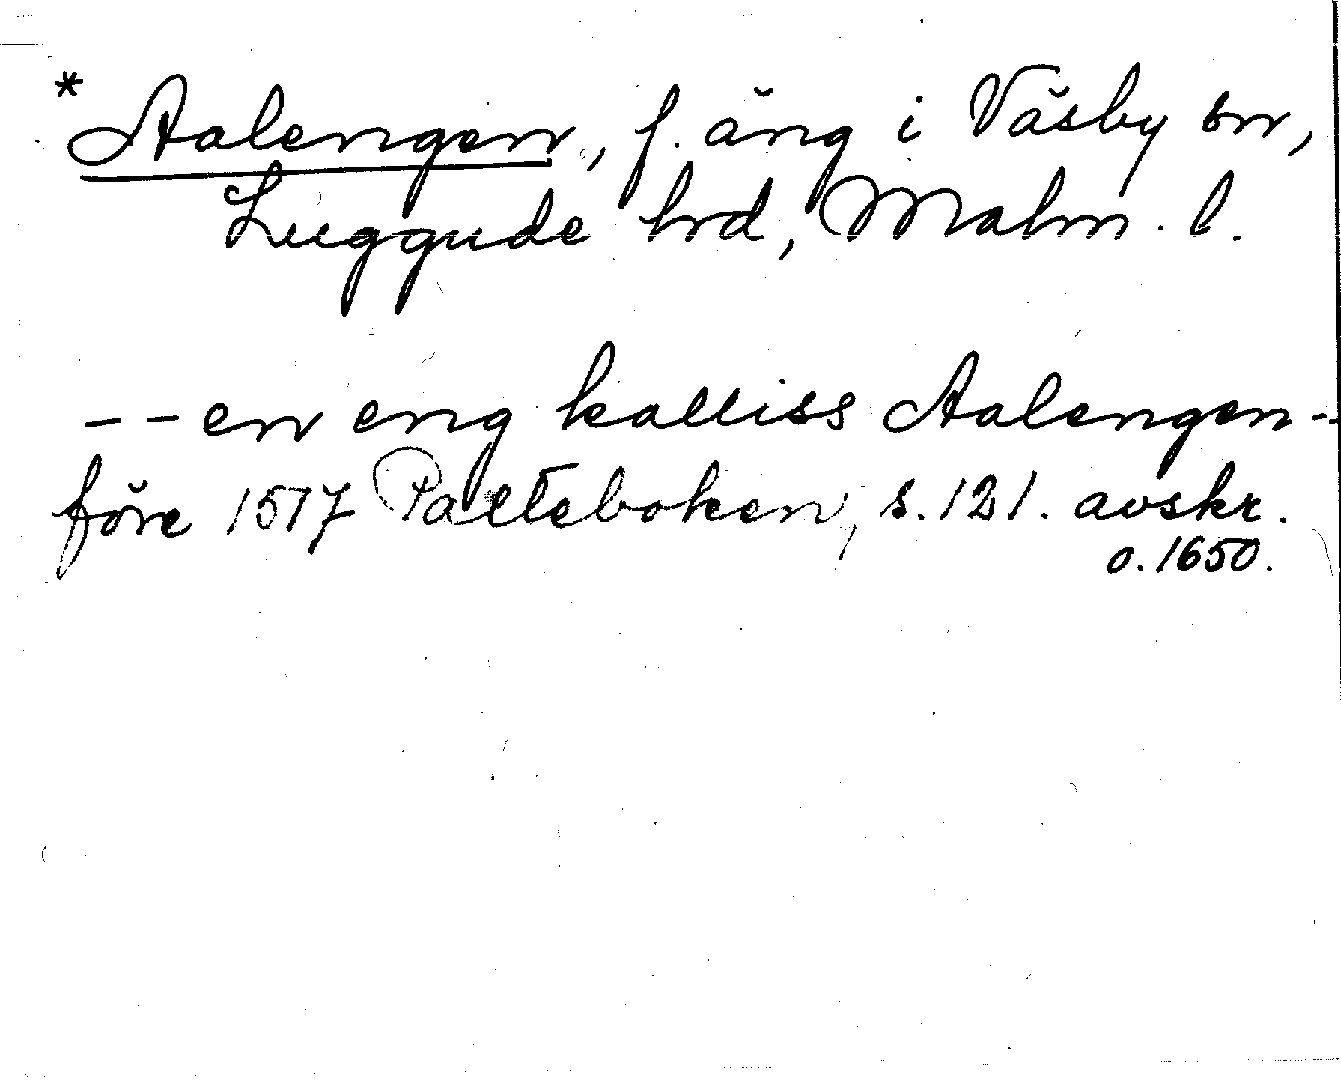 * Aalengen, f. äng i Väsby sn,
Luggude hrd, Malm. l.
-- en eng kalliss Aalengen --
före 1517 Palteboken, s. 121. avskr.
o. 1650.